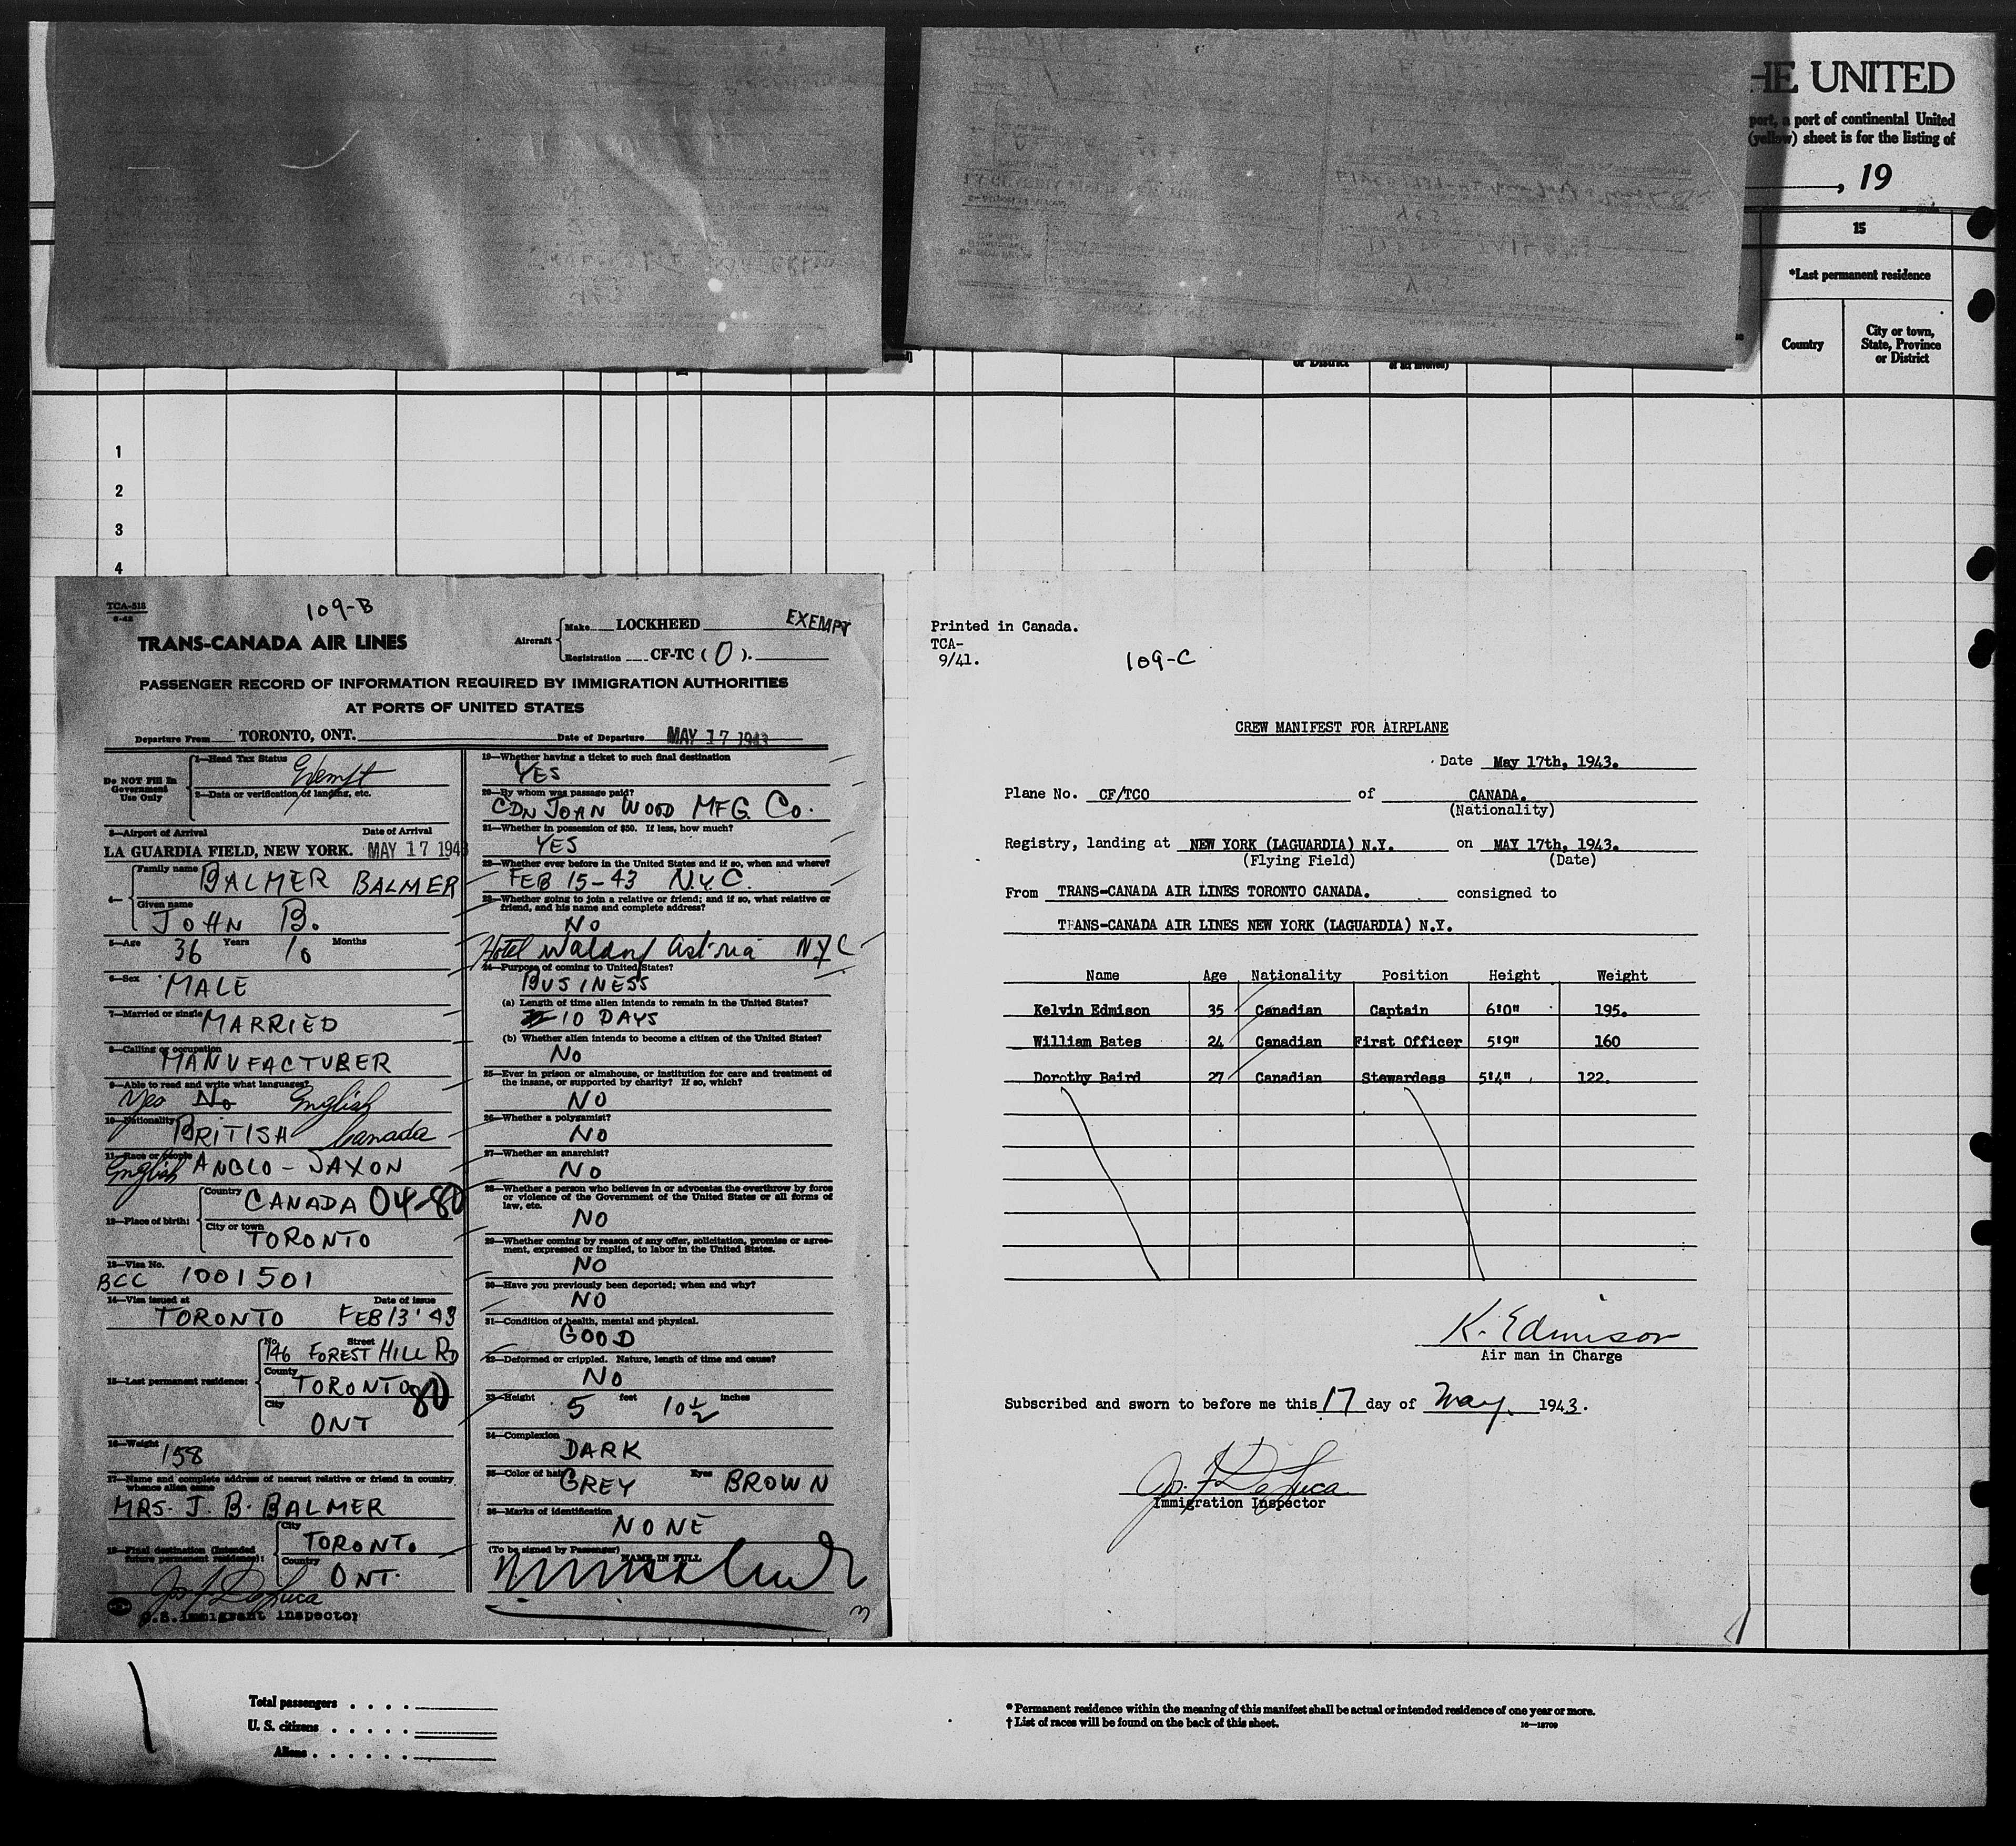 HE UNITED
port, a port of continental United
(yellow) sheet is for the listing of
, 19
15
*Last permanent residence
Country
City or town,
State, Province
or District
or District
1
2
3
4
TCA-518
109-B
TRANS-CANADA AIR LINES
Aircraft
Make LOCKHEED
EXEMPT
Registration CF-TC ( O ).
PASSENGER RECORD OF INFORMATION REQUIRED BY IMMIGRATION AUTHORITIES
AT PORTS OF UNITED STATES
Departure From TORONTO, ONT. Date of Departure MAY 17 1943
Do NOT Fill In
Government
Use Only
1—Head Tax Status
Exempt
2—Data or verification of landing, etc.
3—Airport of Arrival Date of Arrival
LA GUARDIA FIELD, NEW YORK. MAY 17 1943
4—
Family name
BALMER BALMER
Given name
JOHN B.
5—Age 36 Years 10 Months
6—Sex
MALE
7—Married or single
MARRIED
8—Calling or occupation
MANUFACTUBER
9—Able to read and write what languages?
Yes No English
10—Nationality
BRITISH Canada
11—Race or people
English ANGLO-SAXON
12—Place of birth:
Country
CANADA 04-80
City or town
TORONTO
13—Visa No.
BCC 1001501
14—Visa issued at Date of issue
TORONTO FEB 13 '43
15—Last permanent residence:
No. Street
146 FOREST HILL RD
County
TORONTO 80
City
ONT
16—Weight
158
17—Name and complete address of nearest relative or friend in country
whence alien came
MRS. J. B. BALMER
18—Final destination (Intended
future permanent residence):
City
TORONT.
Country
ONT.
Jos. F. DeLuca
U.S. Immigrant Inspector
19—Whether having a ticket to such final destination
YES
20—By whom was passage paid?
CDN JOAN WOOD MFG. Co.
21—Whether in possession of $50. If less, how much?
YES
22—Whether ever before in the United States and if so, when and where?
FEB 15-43 N.Y.C.
23—Whether going to join a relative or friend; and if so, what relative or
friend, and his name and complete address?
NO
Hotel Waldorf Astoria NYC
24—Purpose of coming to United States?
BUSINESS
(a) Length of time alien intends to remain in the United States?
10 DAYS
(b) Whether alien intends to become a citizen of the United States?
No
25—Ever in prison or almshouse, or institution for care and treatment of
the insane, or supported by charity? If so, which?
NO
26—Whether a polygamist?
NO
27—Whether an anarchist?
NO
28—Whether a person who believes in or advocates the overthrow by force
or violence of the Government of the United States or all forms of
law, etc.
NO
29—Whether coming by reason of any offer, solicitation, promise or agree-
ment, expressed or implied, to labor in the United States.
NO
30—Have you previously been deported; when and why?
NO
31—Condition of health, mental and physical.
GOOD
32—Deformed or crippled. Nature, length of time and cause?
NO
33—Height 5 feet 10½ inches
34—Complexion
DARK
35—Color of hair GREY Eyes BROWN
36—Marks of identification
NONE
(To be signed by Passenger) NAME IN FULL
3
Printed in Canada.
TCA-
9/41.
109-C
CREW MANIFEST FOR AIRPLANE
Date May 17th, 1943.
Plane No. CF/TCO of CANADA.
(Nationality)
Registry, landing at NEW YORK (LAGUARDIA) N.Y. on MAY 17th, 1943.
(Flying Field) (Date)
From TRANS-CANADA AIR LINES TORONTO CANADA. consigned to
TRANS-CANADA AIR LINES NEW YORK (LAGUARDIA) N.Y.
Name Age Nationality Position Height Weight
Kelvin Edmison 35 Canadian Captain 6'0" 195.
William Bates 24 Canadian First Officer 5'9" 160
Dorothy Baird 27 Canadian Stewardess 5'4" 122.
K. Edmison
Air man in Charge
Subscribed and sworn to before me this 17 day of May. 1943.
Jos. F. DeLuca
Immigration Inspector
Total passengers . . . .
U. S. citizens . . . . .
Aliens . . . . . .
* Permanent residence within the meaning of this manifest shall be actual or intended residence of one year or more.
† List of races will be found on the back of this sheet.
16—18709